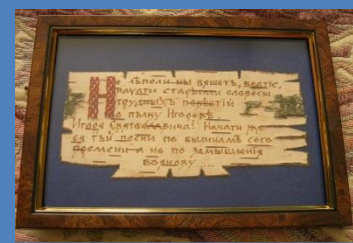 Нѣполи ны бяшетъ, братіе,
начати старыми словесы
трудныхъ повѣстій
о пълку Игоревѣ
Игоря Святославича! Начати же
ся тъй пѣсни по былинамъ сего
времени а не по замышленія
Бояновѹ...